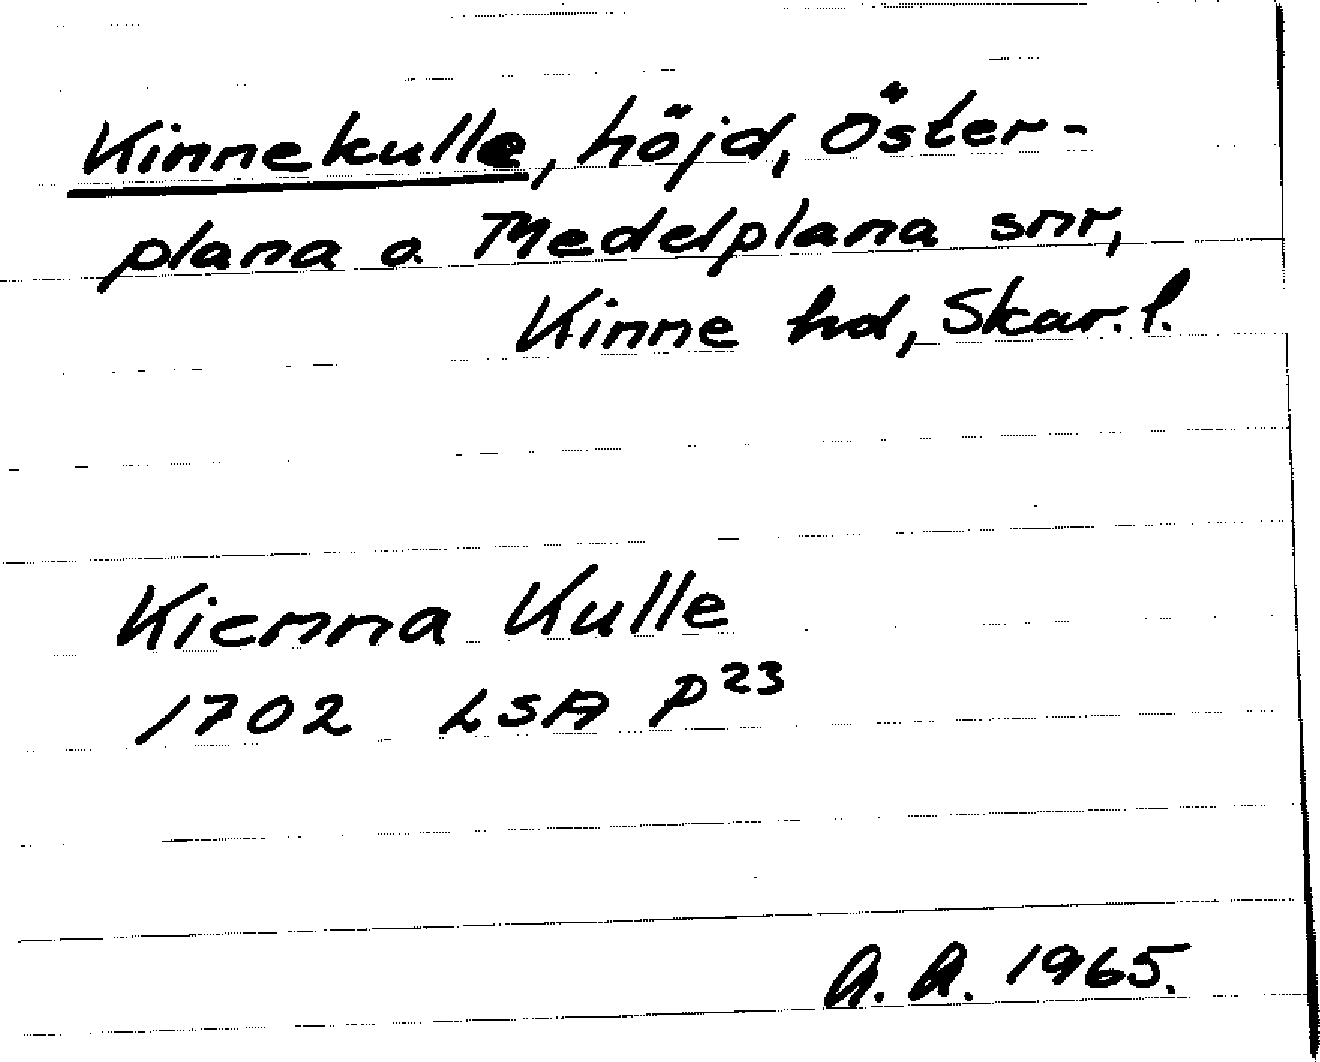 Kinnekulle, höjd, Öster-
plana o. Medelplana snr,
Kinne hd, Skar. l.
Kienna Kulle
1702 LSA P23
A. A. 1965.